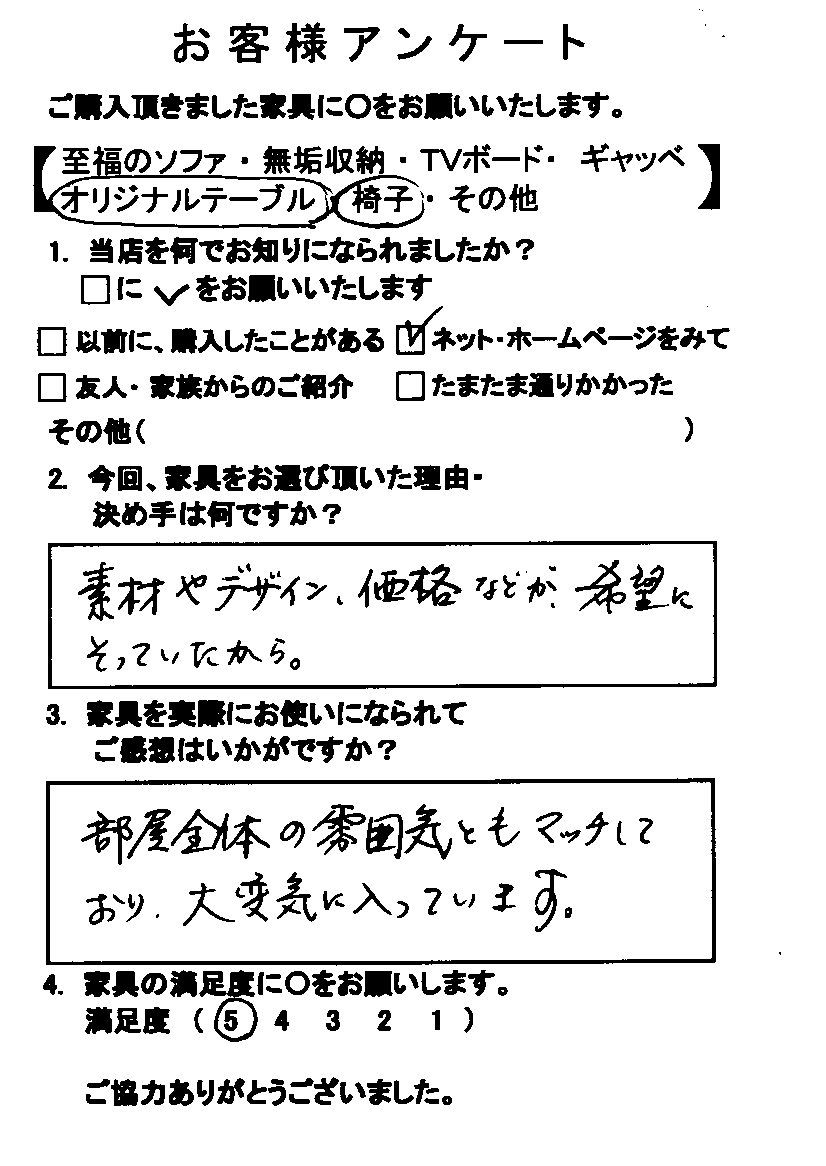 お客様アンケート
ご購入頂きました家具に〇をお願いいたします。
【至福のソファ・無垢収納・TVボード・ ギャッベ
オリジナルテーブル・椅子・その他】
1. 当店を何でお知りになられましたか？
□に✓をお願いいたします
□ 以前に、購入したことがある ☑ ネット・ホームページをみて
□ 友人・家族からのご紹介 □ たまたま通りかかった
その他（ ）
2. 今回、家具をお選び頂いた理由・
決め手は何ですか？
素材やデザイン、価格などが、希望に
そっていたから。
3. 家具を実際にお使いになられて
ご感想はいかがですか？
部屋全体の雰囲気ともマッチして
おり、大変気に入っています。
4. 家具の満足度に〇をお願いします。
満足度 （ 5 4 3 2 1 ）
ご協力ありがとうございました。